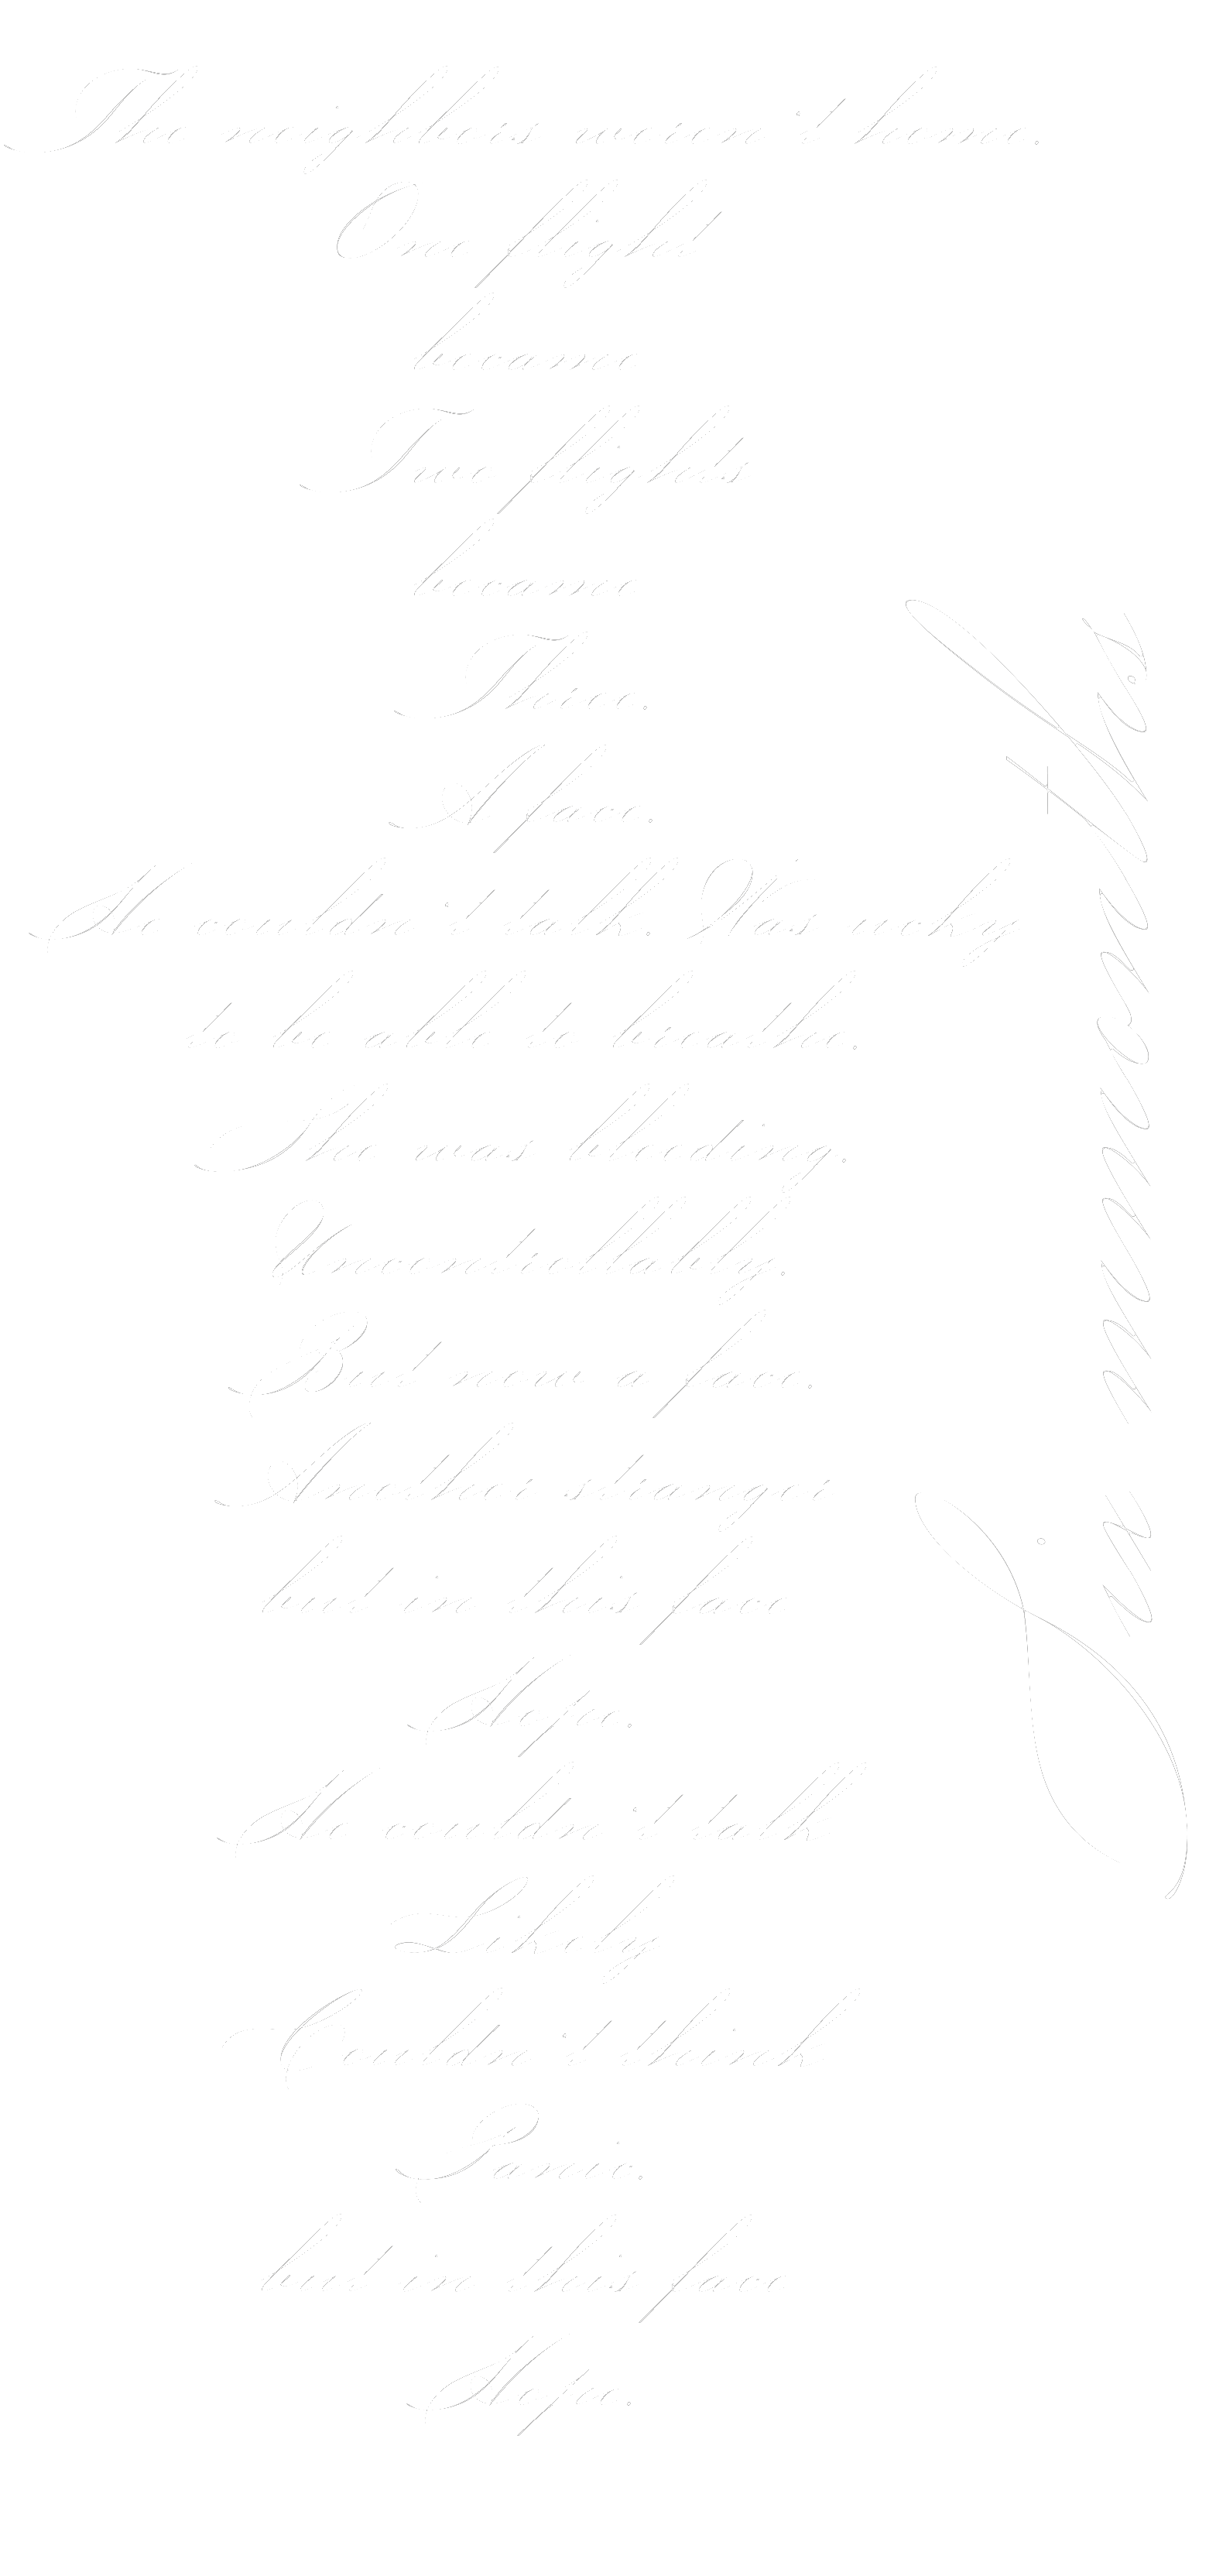 The neighbors weren't home.
One flight
became
Two flights
became
Three.
A face.
He couldn't talk. Was ucky
to be able to breathe.
She was bleeding.
Uncontrollably.
But now a face.
Another stranger
but in this face
Hope.
He couldn't talk
Likely
Couldn't think
Panic.
but in this face
Hope.
Six months